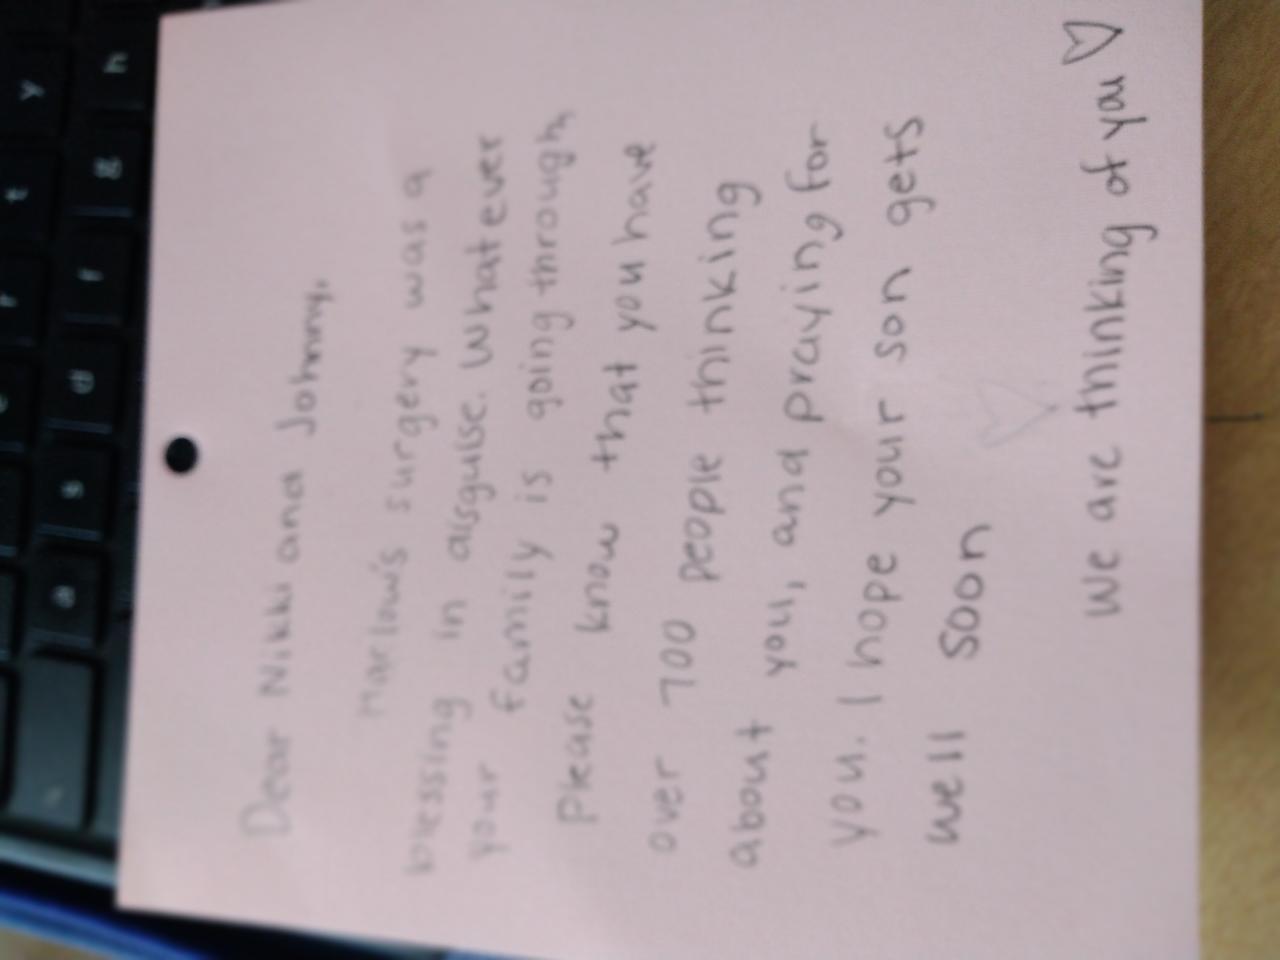 Dear Nikki and Johnny,
Marlow's surgery was a
blessing in disguise. Whatever
your family is going through,
please know that you have
over 700 people thinking
about you, and praying for
you. I hope your son gets
well soon
We are thinking of you ♡
y h
t g
r f
e d
s
a